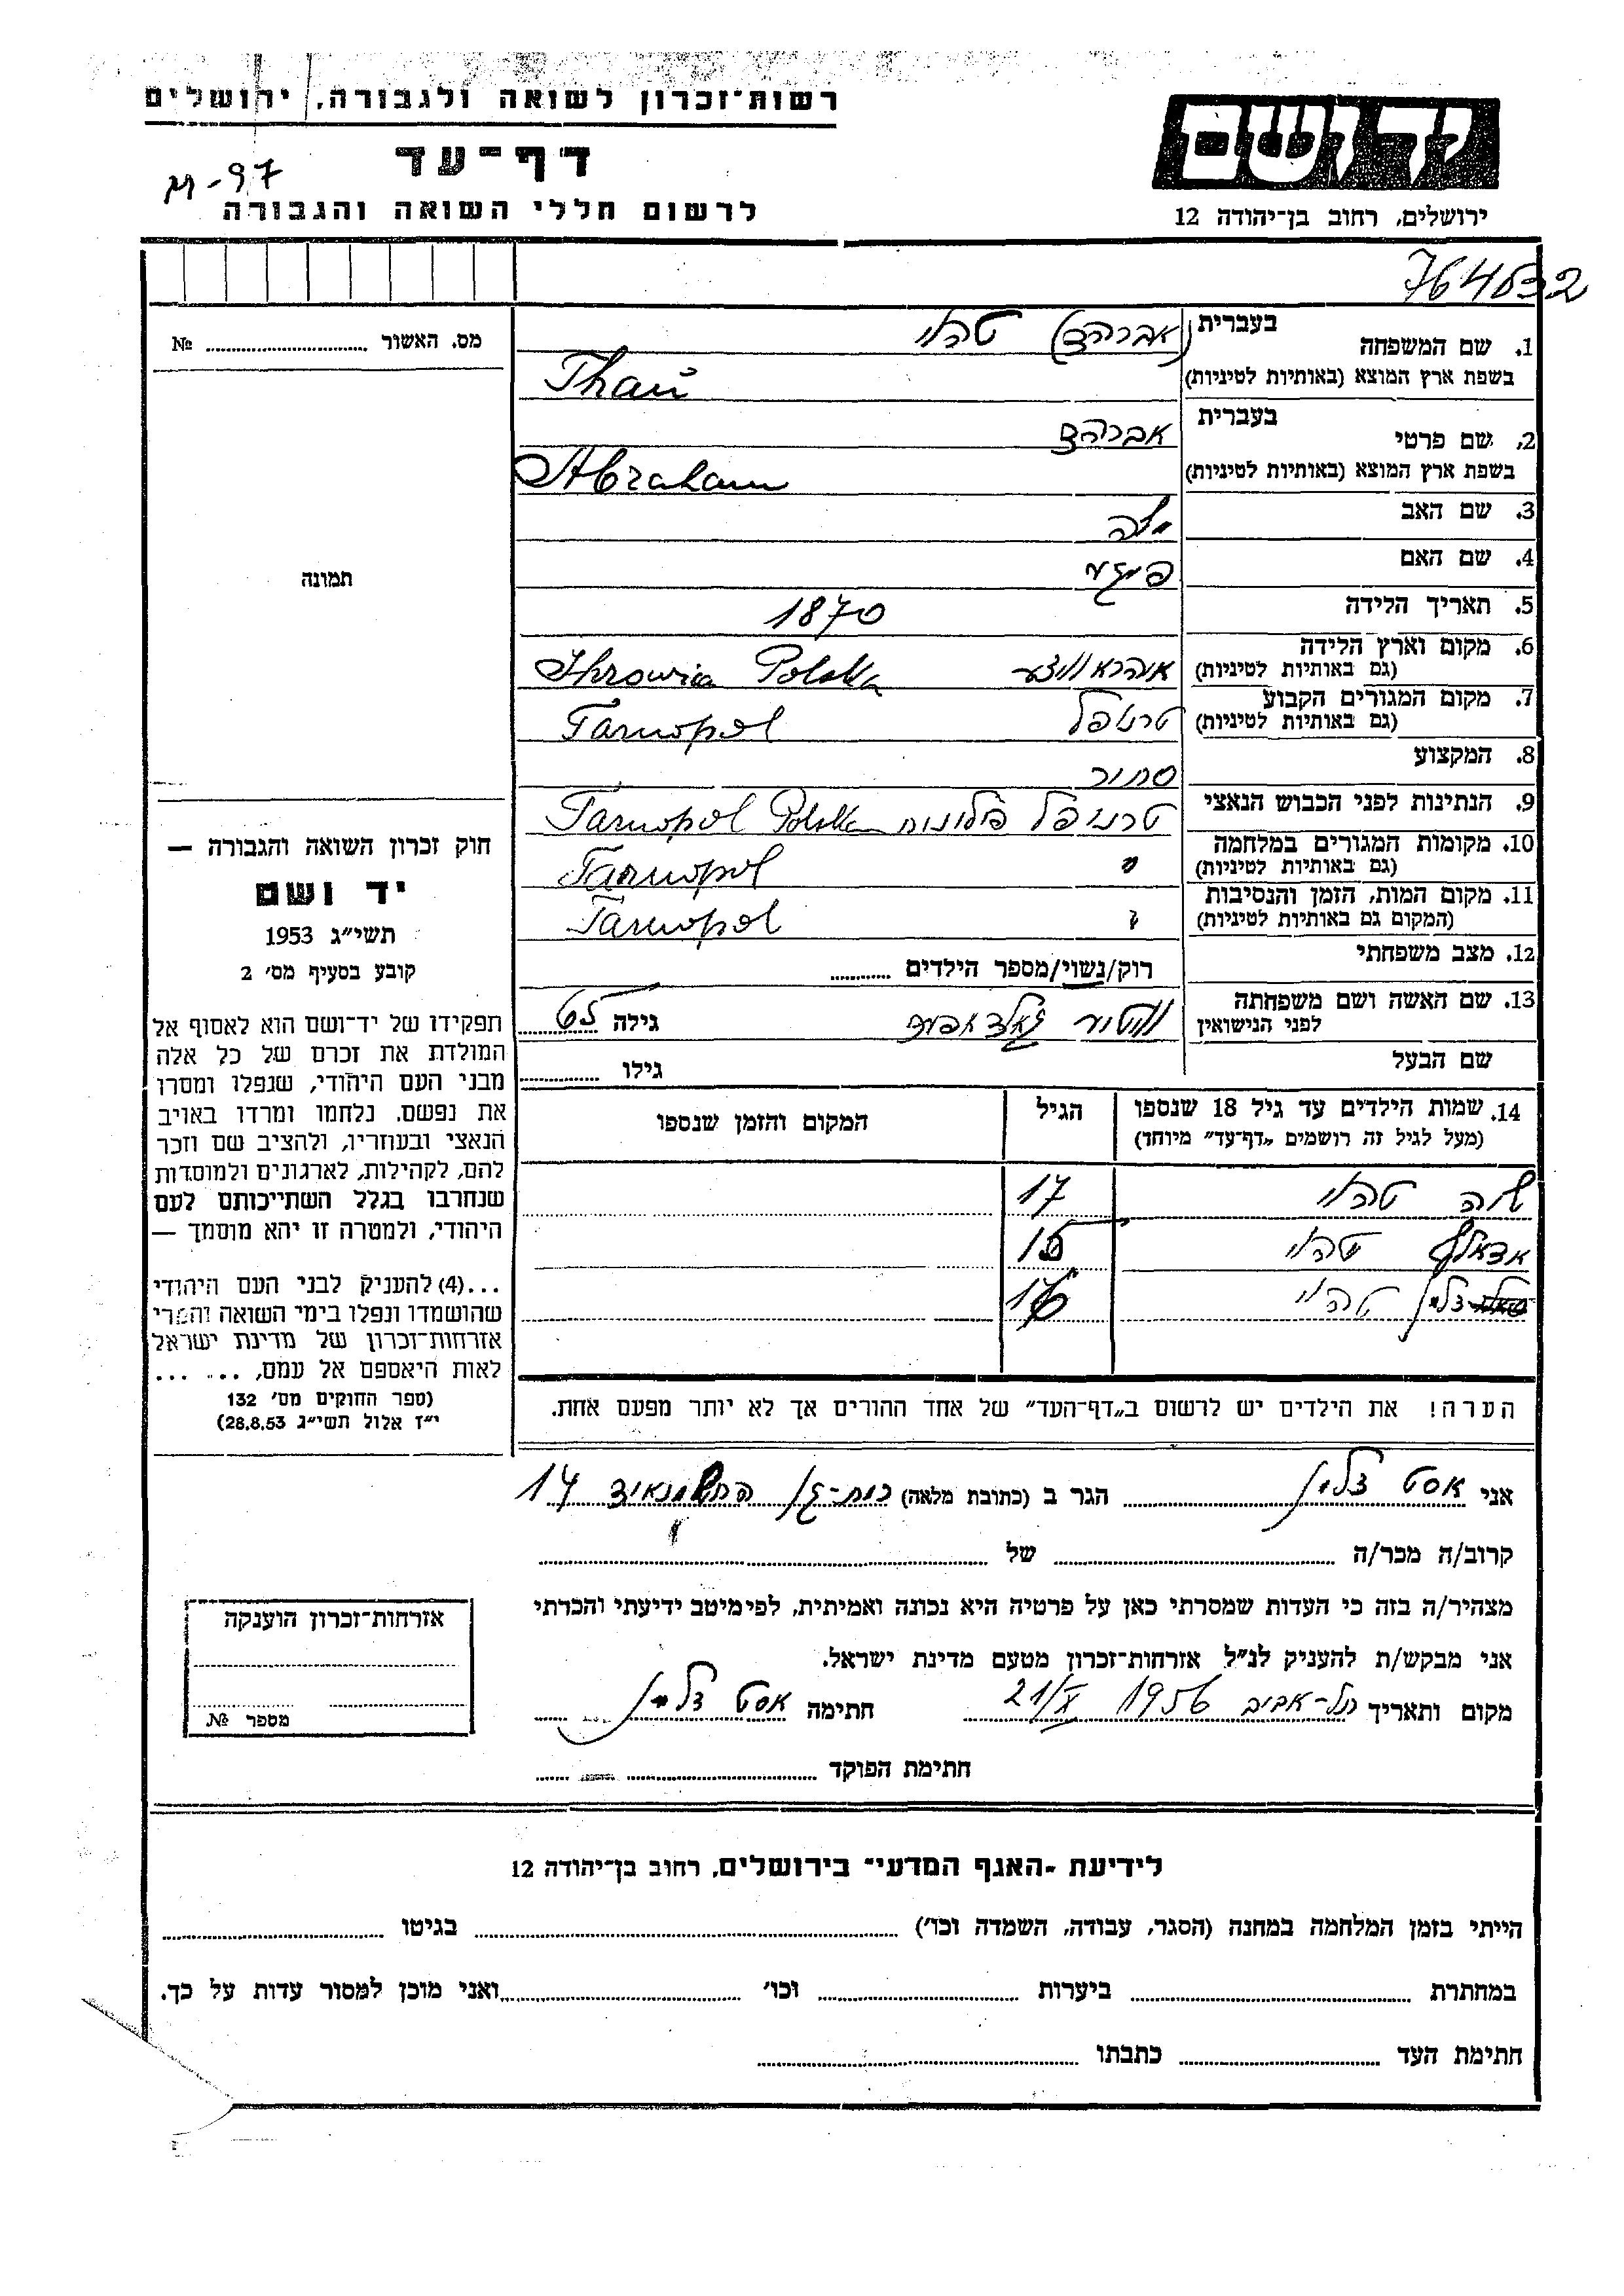 רשות־זכרון לשואה ולגבורה, ירושלים
דף־עד
M-97
לרשום חללי השואה והגבורה
יד ושם
ירושלים, רחוב בן־יהודה 12
764532
מס. האשור № ........
תמונה
1. שם המשפחה בעברית (אברהם) טהוי
בשפת ארץ המוצא (באותיות לטיניות) Thau
2. שם פרטי בעברית אברהם
בשפת ארץ המוצא (באותיות לטיניות) Abraham
3. שם האב
4. שם האם פיגא
5. תאריך הלידה 1870
6. מקום וארץ הלידה
(גם באותיות לטיניות) Ihrowica Polska
7. מקום המגורים הקבוע
(גם באותיות לטיניות) טרנופל Tarnopol
8. המקצוע סוחר
9. הנתינות לפני הכבוש הנאצי טרנופל פולונית Tarnopol Polska
10. מקומות המגורים במלחמה
(גם באותיות לטיניות) " Tarnopol
11. מקום המות, הזמן והנסיבות
(המקום גם באותיות לטיניות) " Tarnopol
12. מצב משפחתי רוק/נשוי/מספר הילדים ........
13. שם האשה ושם משפחתה
לפני הנישואין גילה 65
שם הבעל גילו ........
14. שמות הילדים עד גיל 18 שנספו הגיל המקום והזמן שנספו
(מעל לגיל זה רושמים „דף־עד” מיוחד)
שרה טהוי 17
אדאלף טהוי 15
זלמן טהוי 16
הערה! את הילדים יש לרשום ב„דף־העד” של אחד ההורים אך לא יותר מפעם אחת.
חוק זכרון השואה והגבורה —
יד ושם
תשי״ג 1953
קובע בסעיף מס׳ 2
תפקידו של יד־ושם הוא לאסוף אל
המולדת את זכרם של כל אלה
מבני העם היהודי, שנפלו ומסרו
את נפשם. נלחמו ומרדו באויב
הנאצי ובעוזריו, ולהציב שם וזכר
להם, לקהילות, לארגונים ולמוסדות
שנחרבו בגלל השתייכותם לעם
היהודי, ולמטרה זו יהא מוסמך —
...(4) להעניק לבני העם היהודי
שהושמדו ונפלו בימי השואה והמרי
אזרחות־זכרון של מדינת ישראל
לאות היאספם אל עמם, ... ...
(ספר החוקים מס׳ 132
י״ז אלול תשי״ג 28.8.53)
אני אסט זלמן הגר ב (כתובת מלאה) רמת-גן החשמונאים 14
קרוב/ה מכר/ה ........ של ........
מצהיר/ה בזה כי העדות שמסרתי כאן על פרטיה היא נכונה ואמיתית, לפי מיטב ידיעתי והכרתי
אני מבקש/ת להעניק לנ״ל אזרחות־זכרון מטעם מדינת ישראל.
מקום ותאריך תל-אביב 1956 21/X חתימה אסט זלמן
חתימת הפוקד ........
אזרחות־זכרון הוענקה
מספר №
לידיעת ״האגף המדעי״ בירושלים, רחוב בן־יהודה 12
הייתי בזמן המלחמה במחנה (הסגר, עבודה, השמדה וכו׳) ........ בגיטו ........
במחתרת ........ ביערות ........ וכו׳ ........ ואני מוכן למסור עדות על כך.
חתימת העד ........ כתבתו ........